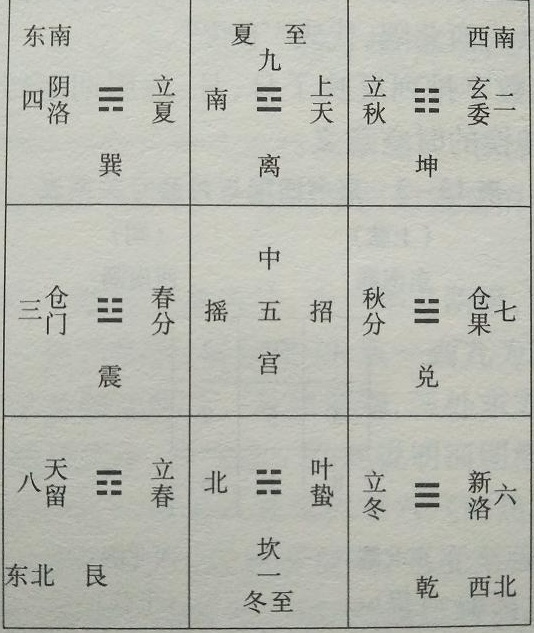 东南
四 阴洛 ☴ 立夏
巽
夏至
九
南 ☲ 上天
离
西南
立秋 ☷ 玄委 二
坤
三 仓门 ☳ 春分
震
中
摇 五 招
宫
秋分 ☱ 仓果 七
兑
八 天留 ☶ 立春
东北 艮
北 ☵ 叶蛰
坎
一
冬至
立冬 ☰ 新洛 六
乾 西北